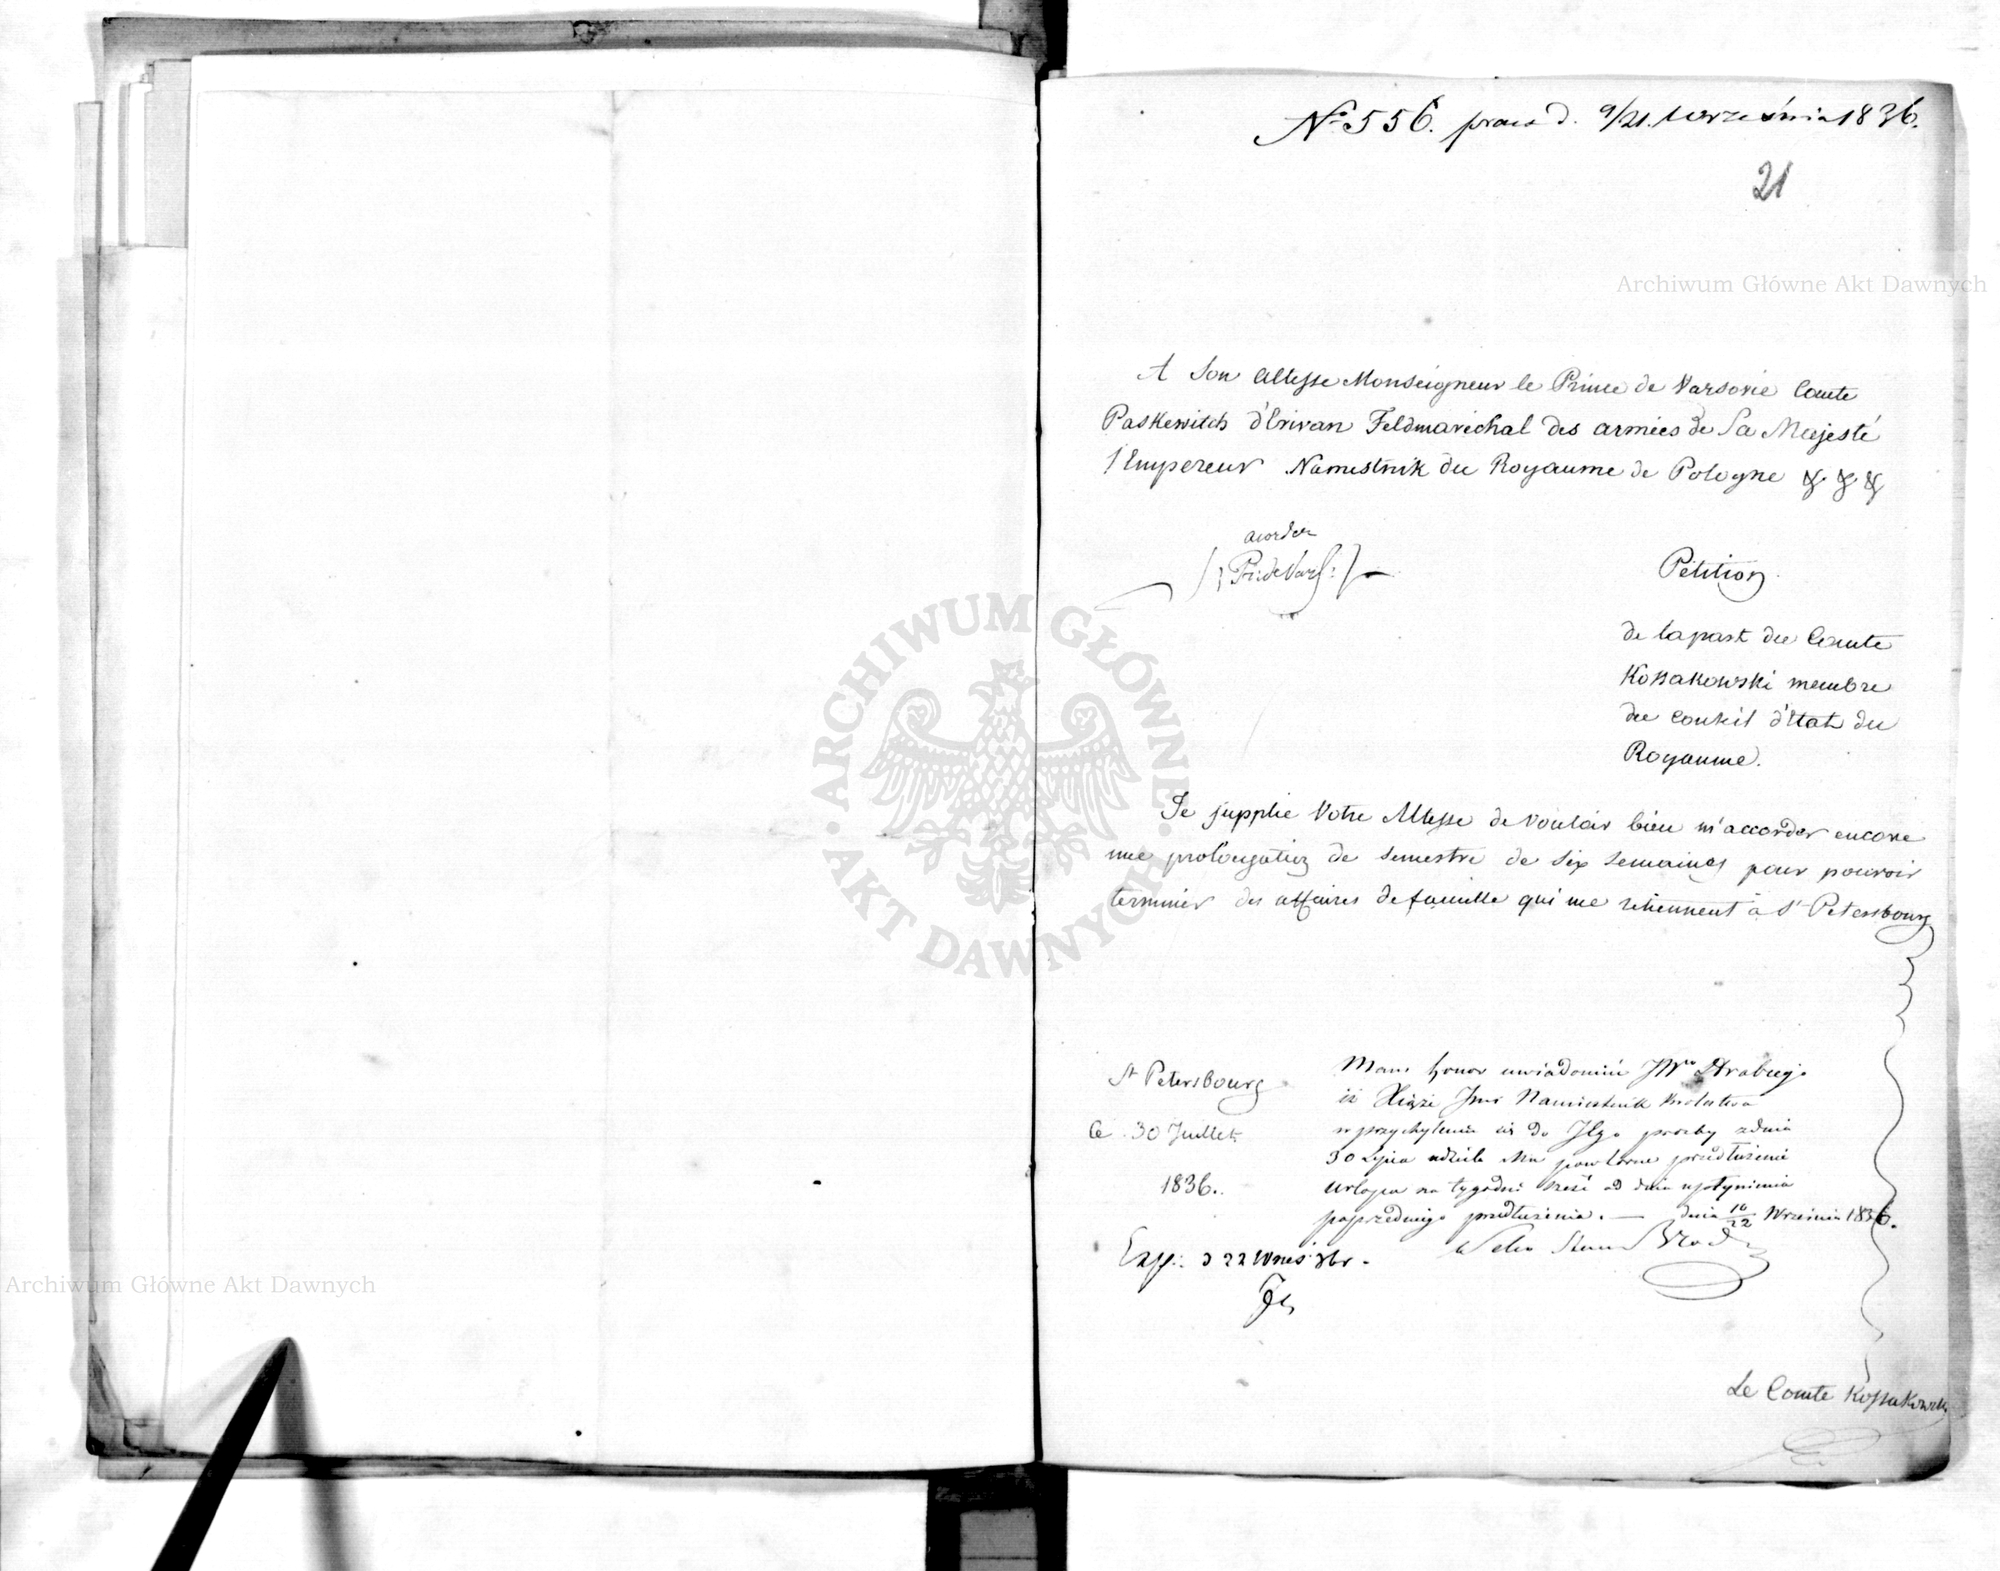 No 556. praes d. 9/21. Września 1836.
21
Archiwum Główne Akt Dawnych
A Son Altesse Monseigneur le Prince de Varsovie Comte
Paskewitch d'Erivan Feldmaréchal des armées de Sa Majesté
l'Empereur Namestnik du Royaume de Pologne & & &
acorder
Pr: de Vars:
Pétition
de la part du Comte
Kossakowski membre
du conseil d'Etat du
Royaume.
Je supplie Votre Altesse de vouloir bien m'accorder encore
une prolongation de semestre de six semaines pour pouvoir
terminer des affaires de famille qui me retiennent à St Petersbourg
St Petersbourg
le 30 Juillet
1836.
Mam honor uwiadomić JWo Hrabiego
iż Xiąże Jmć Namiestnik Królestwa
w przychyleniu się do Jego prośby z dnia
30 Lipca udzielił Mu powtórne przedłużenie
urlopu na tygodni sześć od dnia upłynienia
poprzedniego przedłużenia. — dnia 10/22 Września 1836.
Exp: d 22 Wrześ
Le Comte Kossakowski
ARCHIWUM GŁÓWNE
AKT DAWNYCH
Archiwum Główne Akt Dawnych